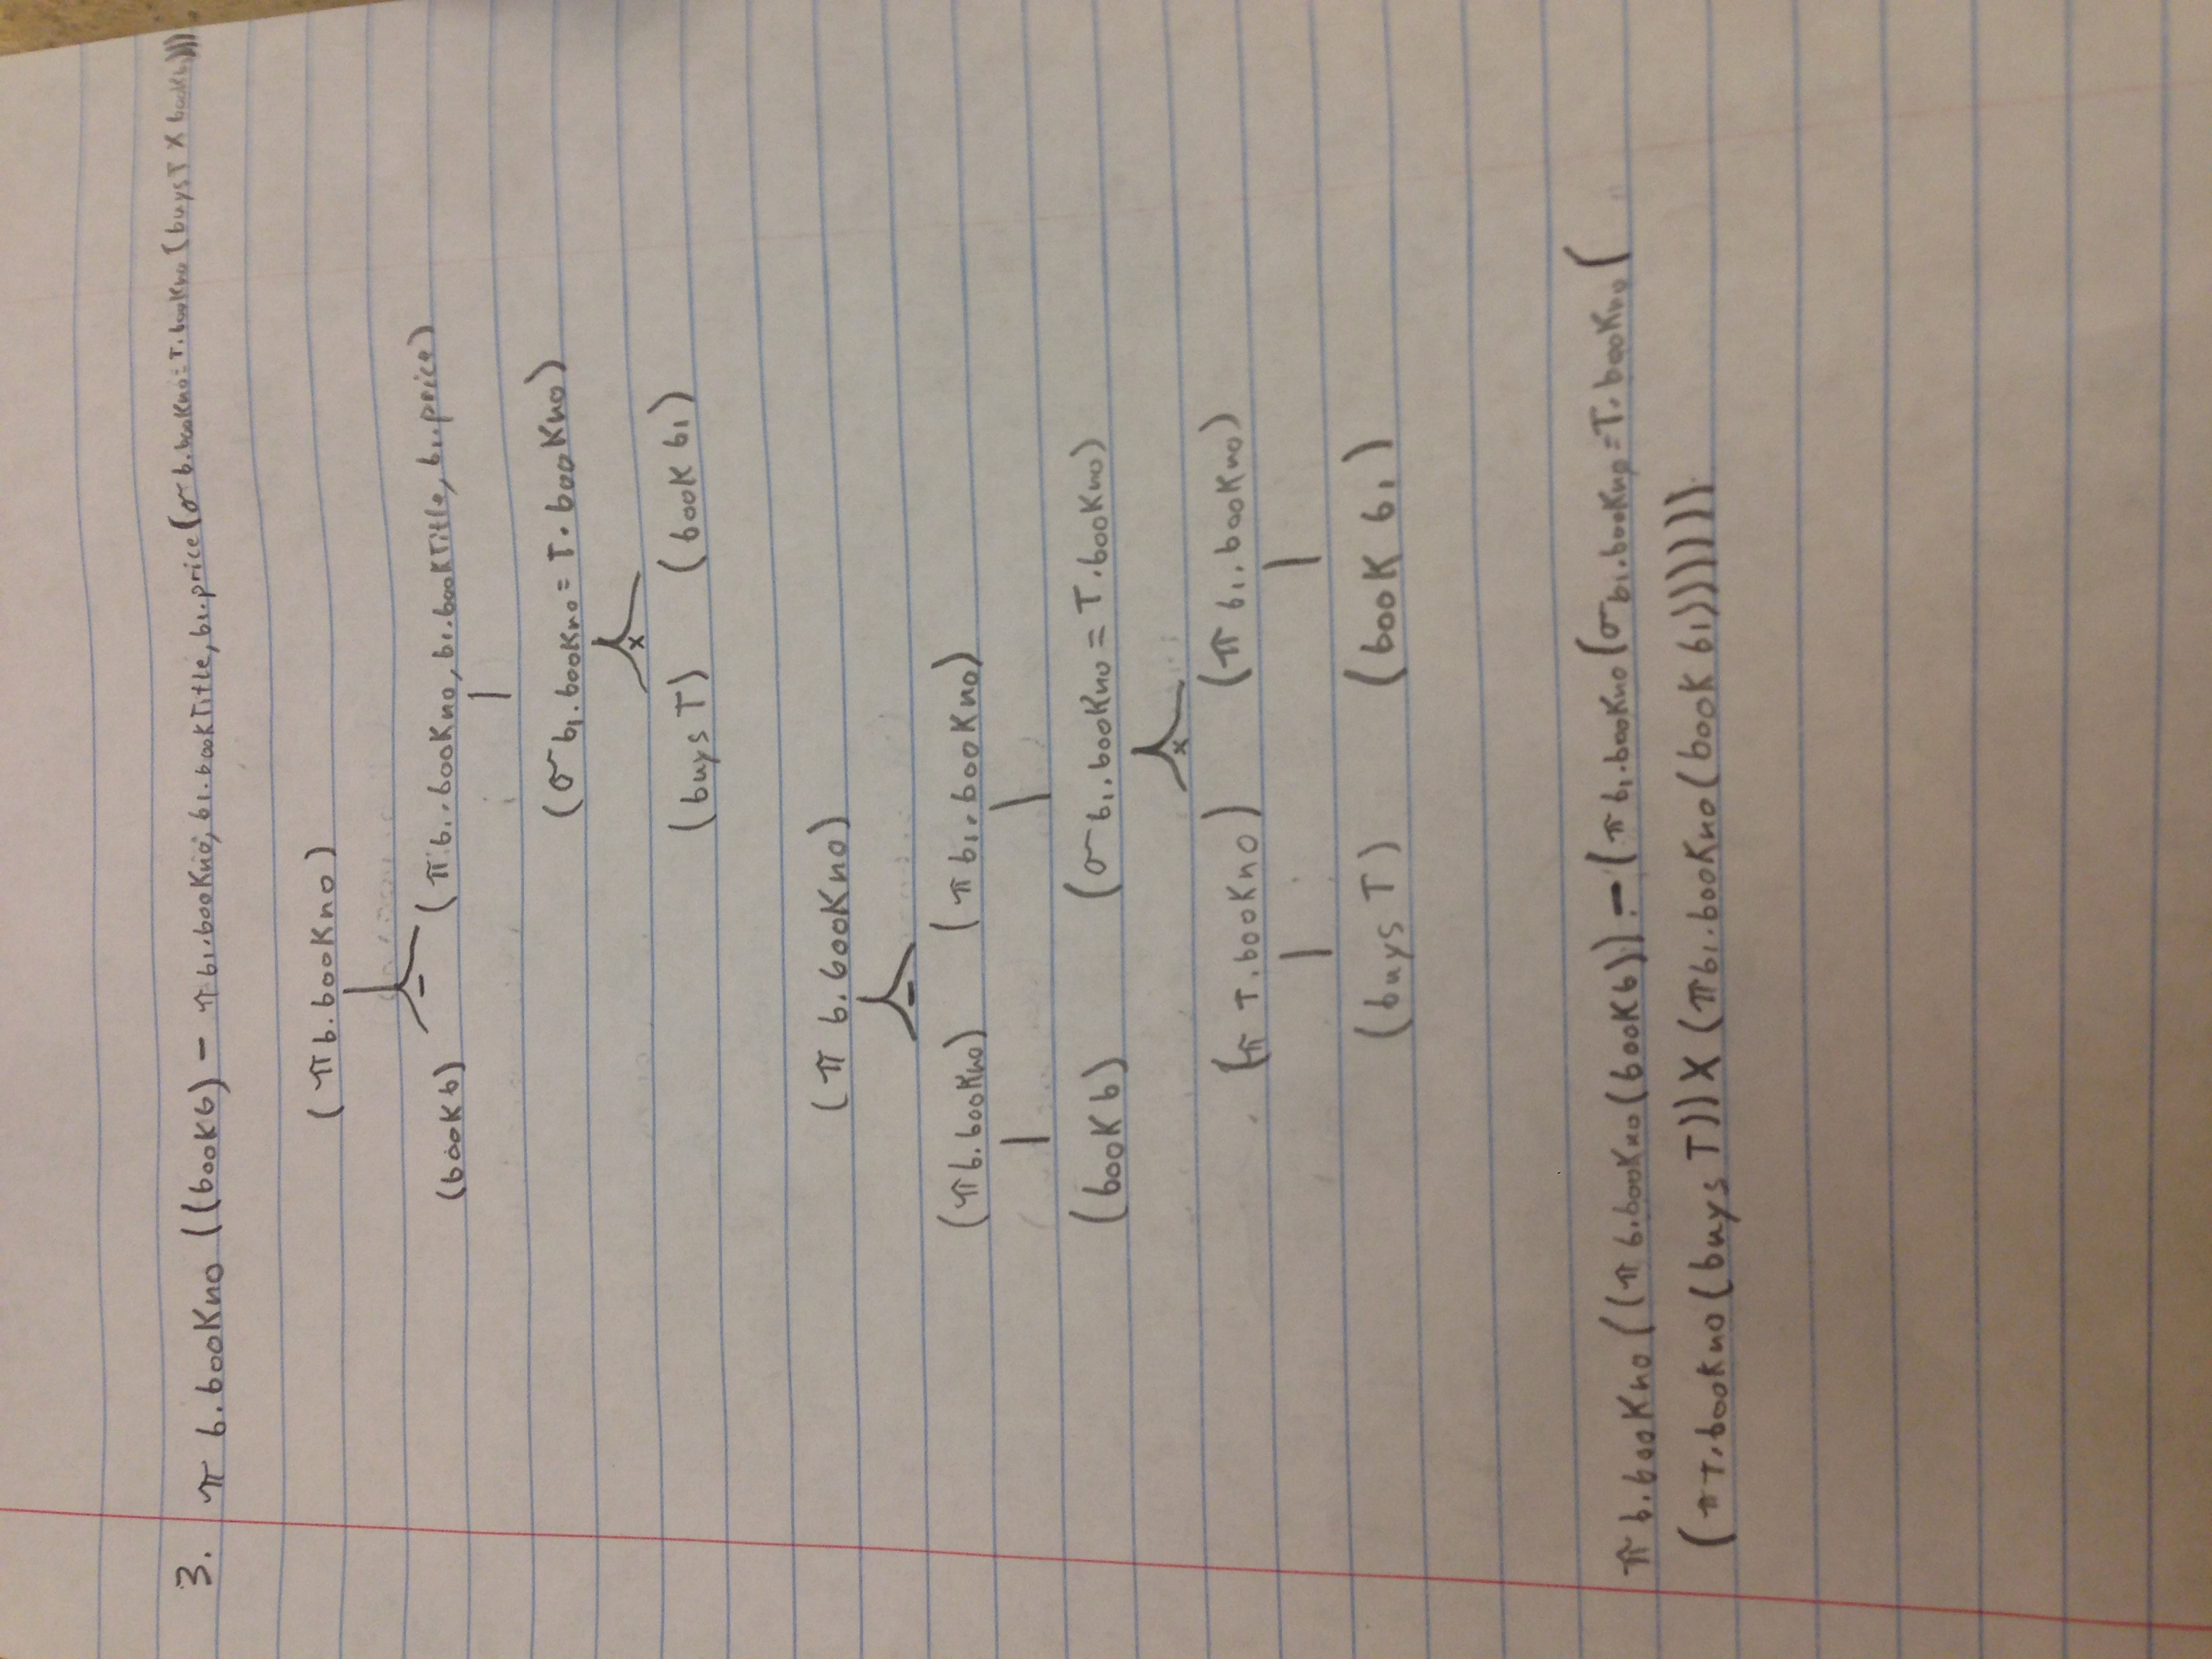 3. π b.bookno ((book b) - π b₁.bookno, b₁.bookTitle, b₁.price (σ b.bookno = T.bookno (buys T X book b₁)))
(π b.bookno)
-
(book b) (π b₁.bookno, b₁.bookTitle, b₁.price)
(σ b₁.bookno = T.bookno)
x
(buys T) (book b₁)
(π b.bookno)
-
(π b.bookno) (π b₁.bookno)
(book b) (σ b₁.bookno = T.bookno)
x
(π T.bookno) (π b₁.bookno)
(buys T) (book b₁)
π b.bookno ((π b.bookno (book b)) - (π b₁.bookno (σ b₁.bookno = T.bookno (
(π T.bookno (buys T)) X (π b₁.bookno (book b₁))))))